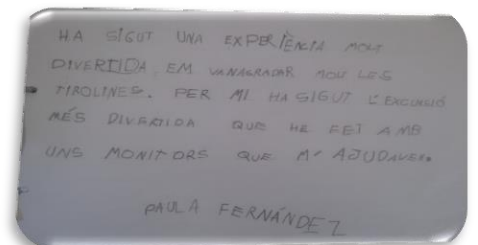 HA SIGUT UNA EXPERIÈNCIA MOLT
DIVERTIDA, EM VANAGRADAR MOU LES
TIROLINES. PER MI HA SIGUT L'EXCURSIÓ
MÉS DIVERTIDA QUE HE FET AMB
UNS MONITORS QUE M'AJUDAVEN.
PAULA FERNÁNDEZ